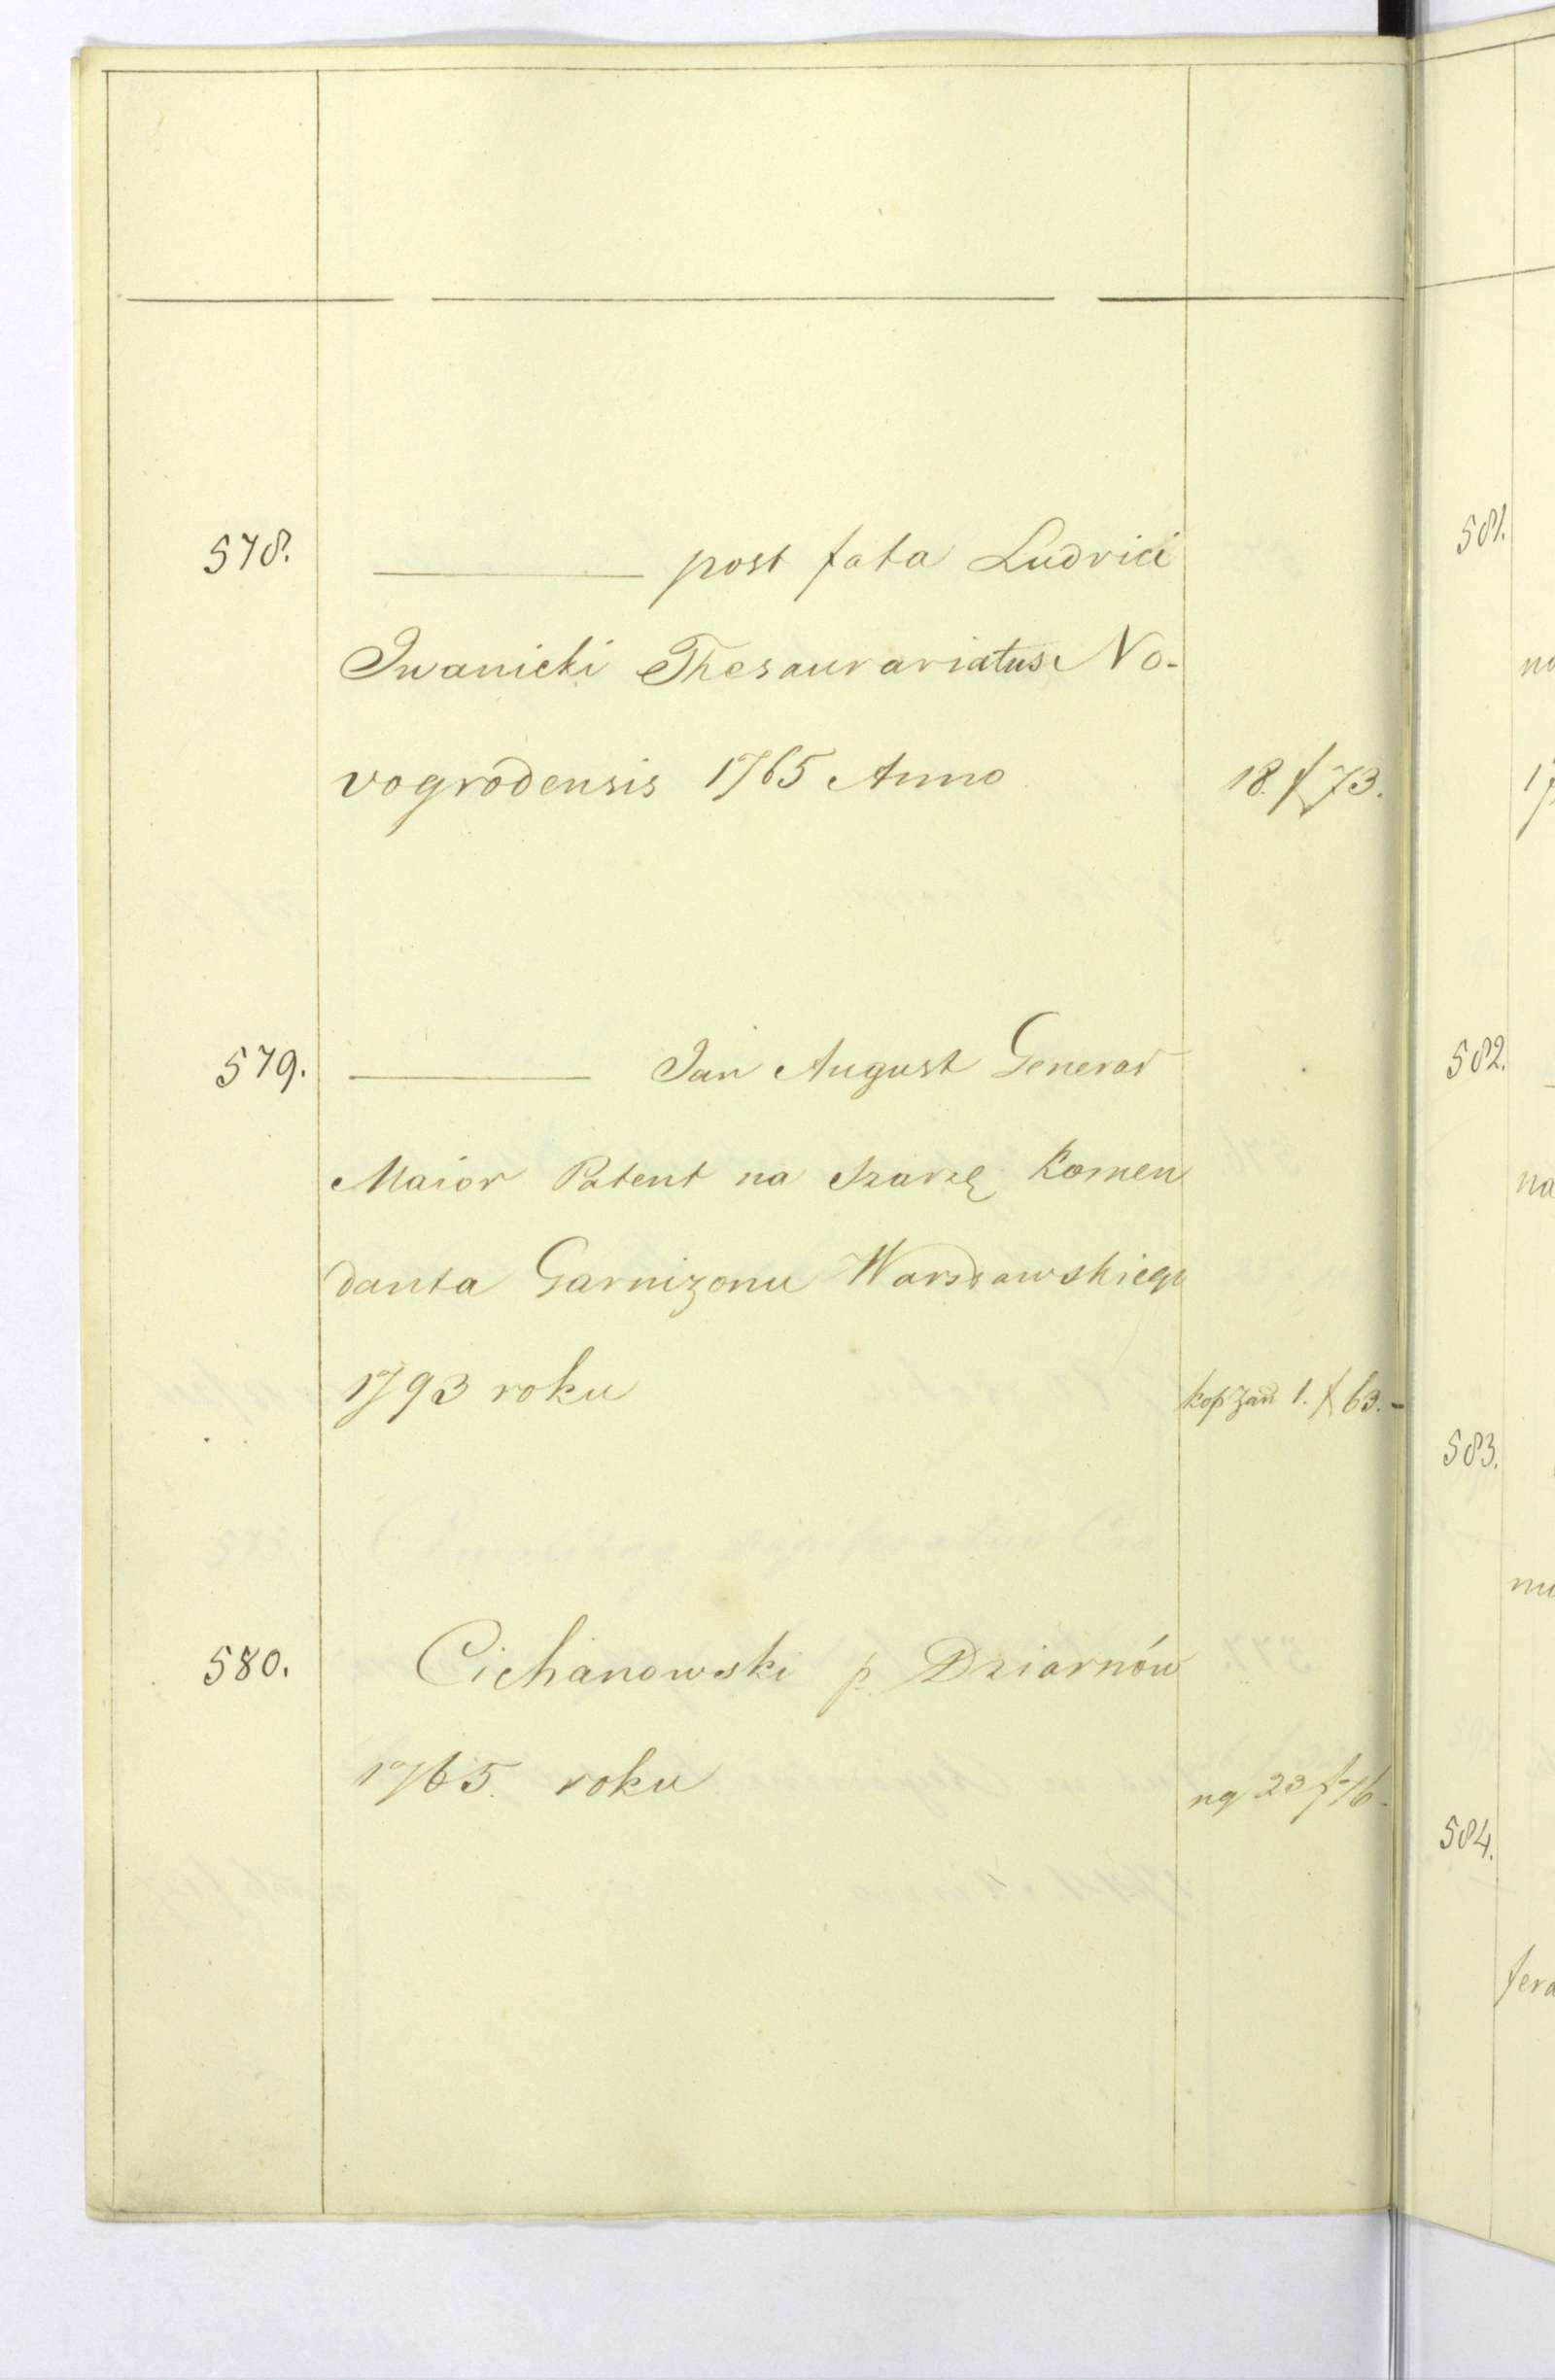 578. ——— post fata Ludvici
Iwanicki Thesaurariatus No-
vogrodensis 1765 Anno 18. f 73.
579. ——— Jan August Generał
Maior Patent na Szarżę Komen
danta Garnizonu Warszawskiego
1793 roku kop zał 1. f 63.-
580. Cichanowski p Dziarnów
1765. roku ng 23 f 76.
581.
na
17
582.
na
583.
584.
fera